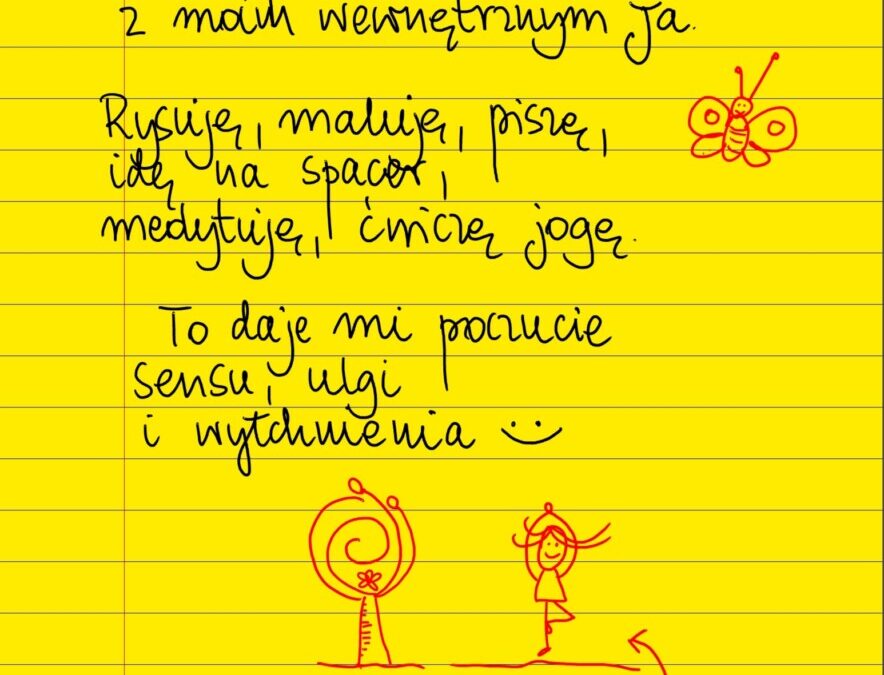 z moim wewnętrznym Ja.
Rysuję, maluję, piszę,
idę na spacer,
medytuję, ćwiczę jogę.
To daje mi poczucie
sensu, ulgi
i wytchnienia :)